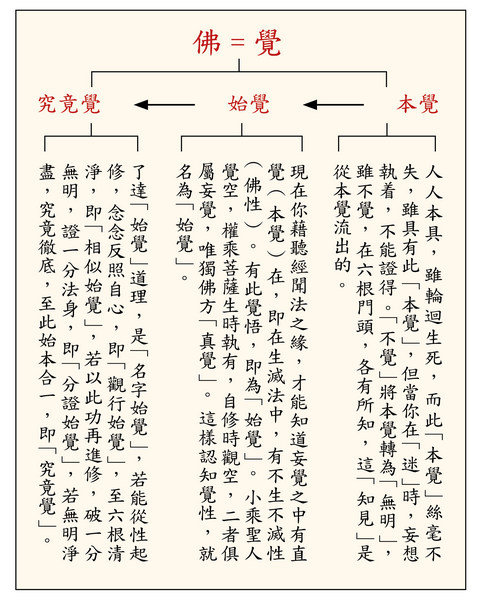 佛=覺
本覺
始覺
究竟覺
人人本具，雖輪迴生死，而此「本覺」絲毫不
失，雖具有此「本覺」，但當你在「迷」時，妄想
執着，不能證得。「不覺」將本覺轉為「無明」，
雖不覺，在六根門頭，各有所知，這「知見」是
從本覺流出的。
現在你藉聽經聞法之緣，才能知道妄覺之中有直
覺（本覺）在，即在生滅法中，有不生不滅性
（佛性）。有此覺悟，即為「始覺」。小乘聖人
覺空，權乘菩薩生時執有，自修時觀空，二者俱
屬妄覺，唯獨佛方「真覺」。這樣認知覺性，就
名為「始覺」。
了達「始覺」道理，是「名字始覺」，若能從性起
修，念念反照自心，即「觀行始覺」，至六根清
淨，即「相似始覺」，若以此功再進修，破一分
無明，證一分法身，即「分證始覺」，若無明淨
盡，究竟徹底，至此始本合一，即「究竟覺」。